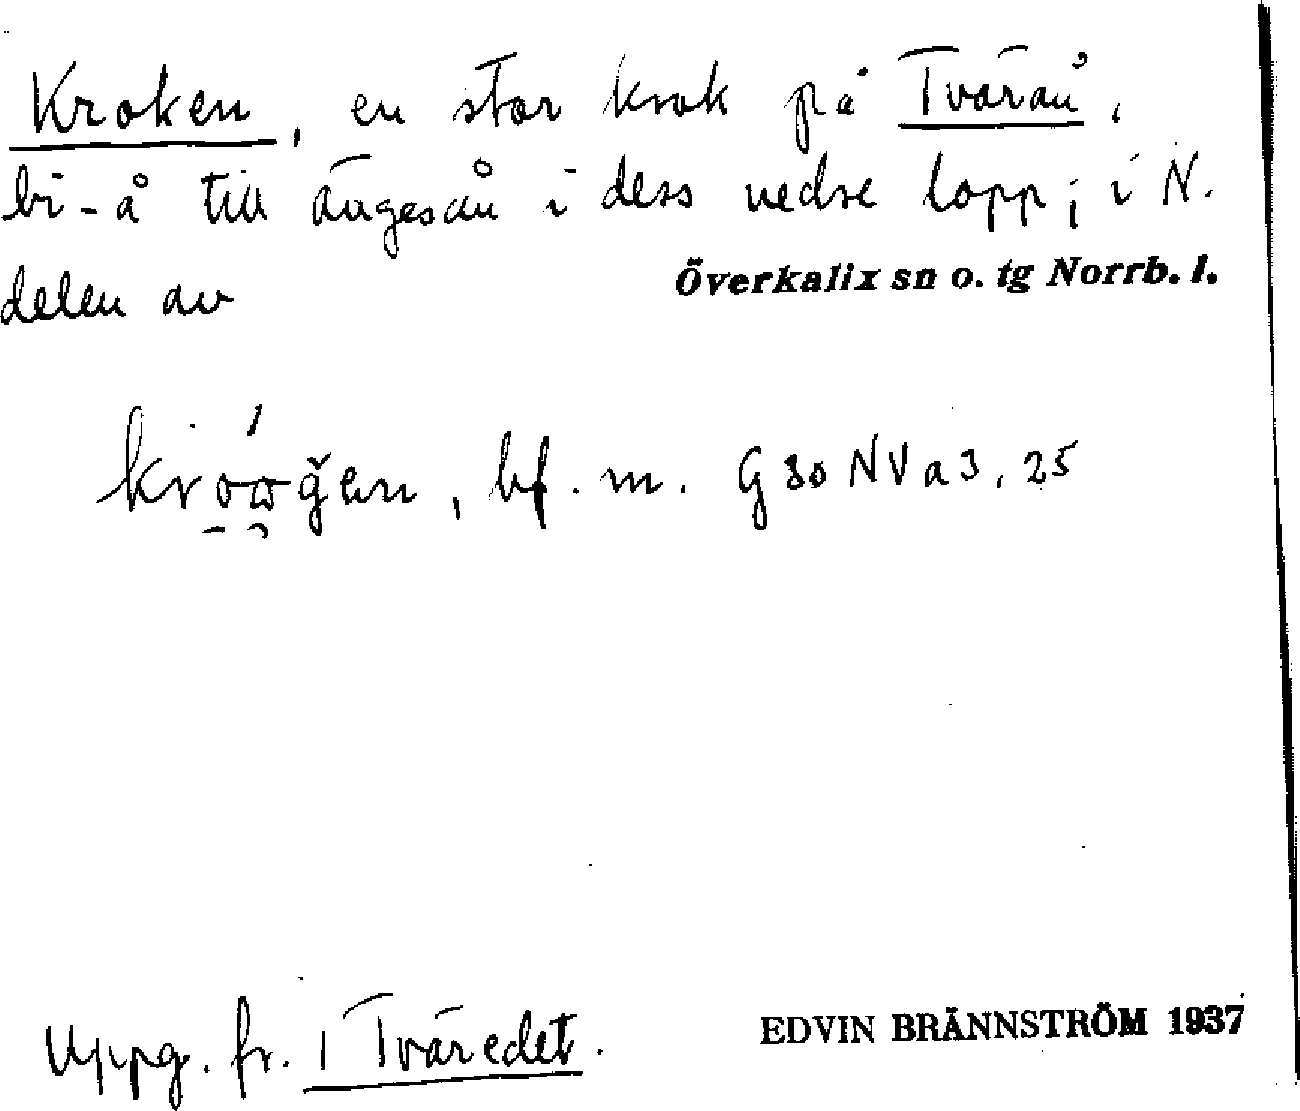 Kroken, en stor krok på Tvärån,
bi-å till ängesån i dess nedre lopp; i N.
delen av Överkalix sn o. tg Norrb. l.
bf. m. G 30 NV a 3, 25
Uppg. fr. i Tväredet.
EDVIN BRÄNNSTRÖM 1937